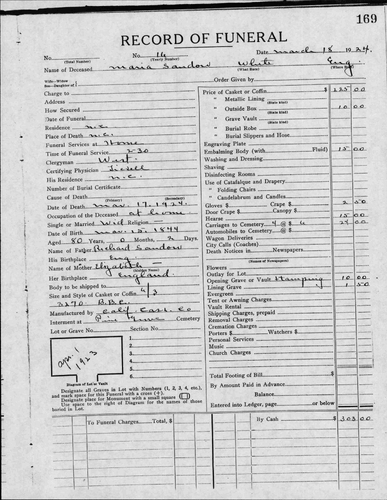 169
RECORD OF FUNERAL
No. (Total Number) No. 14 (Yearly Number) Date March 18, 1924.
Name of Deceased Maria Sandow White (What Race) Eng. (Where Born)
Order Given by
Charge to
Address
How Secured
Date of Funeral
Residence N.C.
Place of Death N.C.
Funeral Services at Home
Time of Funeral Service 2:30
Clergyman West
Certifying Physician
His Residence N.C.
Number of Burial Certificate
Cause of Death (Primary) (Secondary)
Date of Death Mar. 17, 1924.
Occupation of the Deceased at home
Single or Married Wid. Religion
Date of Birth Mar. 15, 1844
Aged 80 Years, 0 Months, 2 Days
Name of Father Richard Sandow
His Birthplace Eng
Name of Mother Elizabeth
Her Birthplace England
Body to be shipped to
Size and Style of Casket 6/3
Manufactured by Calif. Cask. Co
Interment at Pine Cemetery
Lot or Grave No. Section No.
1.
2.
3.
4.
5.
6.
7.
1923
Diagram of Lot or Vault
Designate all Graves in Lot with Numbers (1, 2, 3, 4, etc.),
and mark space for this Funeral with a cross (+).
Designate place for Monument with a small square
Use space to right of Diagram for the names of those
buried in Lot.
Price of Casket or Coffin $ 225 00
" Metallic Lining
" Outside Box 10 00
" Grave Vault
" Burial Robe
" Burial Slippers and Hose
Engraving Plate
Embalming Body (with Fluid) 15 00
Washing and Dressing
Shaving
Disinfecting Rooms
Use of Catafalque and Drapery
" Folding Chairs
" Candelabrum and Candles
Gloves $ Crape $ 2 50
Door Crape $ Canopy $
Hearse 15 00
Carriages to Cemetery 4 @ $ 6 24 00
Automobiles to Cemetery @ $
Wagon Deliveries
City Calls (Coaches)
Death Notices in Newspapers
(Names of Newspapers)
Flowers
Outlay for Lot
Opening Grave or Vault 10 00
Lining Grave 1 50
Evergreen
Tent or Awning Charges
Vault Rental
Shipping Charges, prepaid
Removal Charges
Cremation Charges
Porters $ Watchers $
Personal Services
Music
Church Charges
Total Footing of Bill $
By Amount Paid in Advance
Balance
Entered into Ledger, page or below.
To Funeral Charges Total, $
By Cash $ 303 00